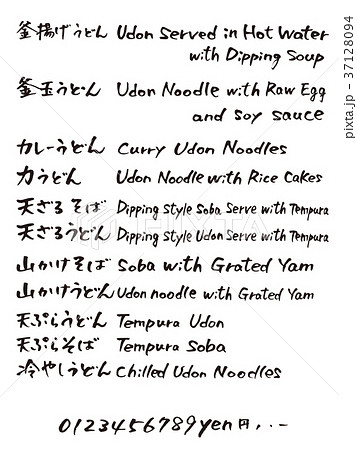 釜揚げうどん Udon Served in Hot Water
with Dipping Soup
釜玉うどん Udon Noodle with Raw Egg
and Soy sauce
カレーうどん Curry Udon Noodles
力うどん Udon Noodle with Rice Cakes
天ざるそば Dipping Style Soba Serve with Tempura
天ざるうどん Dipping Style Udon Serve with Tempura
山かけそば Soba with Grated Yam
山かけうどん Udon noodle with Grated Yam
天ぷらうどん Tempura Udon
天ぷらそば Tempura Soba
冷やしうどん Chilled Udon Noodles
0123456789yen円,.-
PIXTA
pixta.jp - 37128094